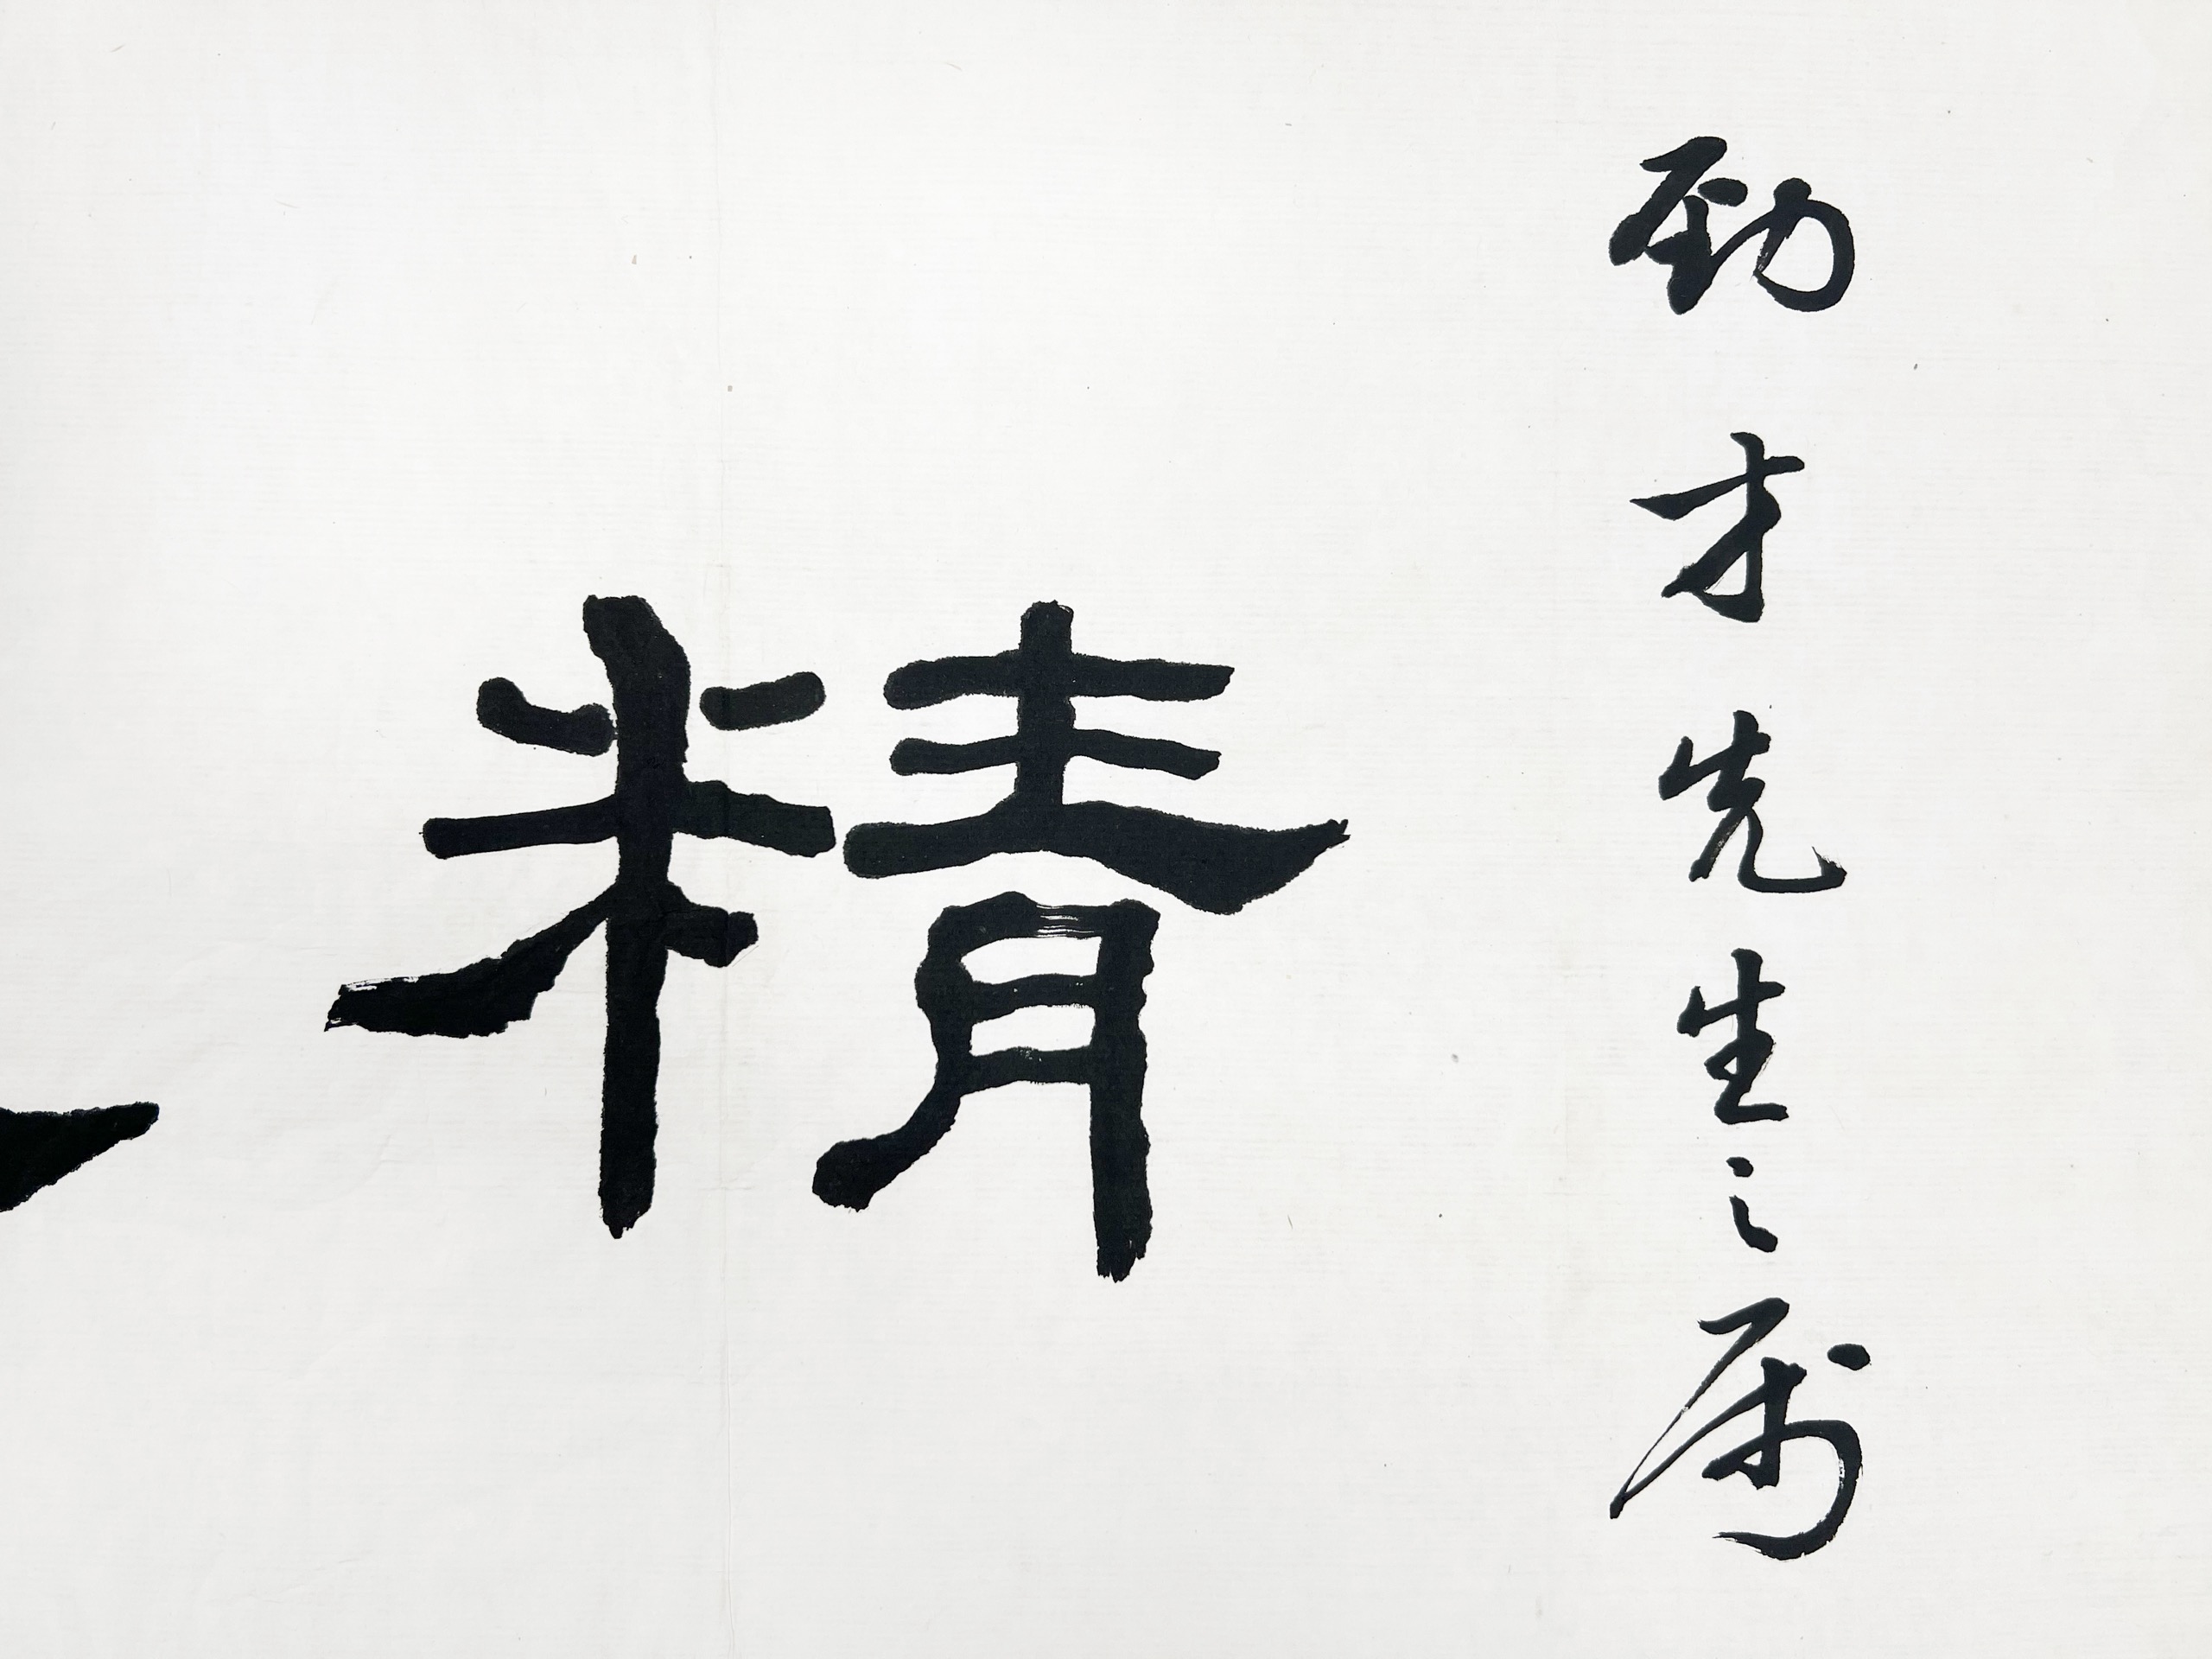 勁才先生之属
精